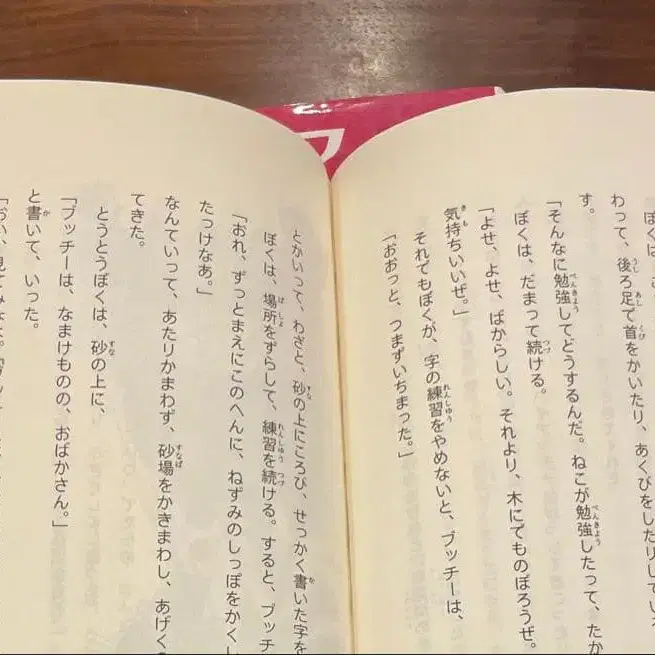 ぼくは、こ
わって、後ろ足で首をかいたり、あくびをしたりしている
す。
「そんなに勉強してどうするんだ。ねこが勉強したって、たか
ぼくは、だまって続ける。
「よせ、よせ、ばからしい。それより、木にでものぼろうぜ。
気持ちいいぜ。」
それでもぼくが、字の練習をやめないと、ブッチーは、
「おおっと、つまずいちまった。」
とかいって、わざと、砂の上にころび、せっかく書いた字を
ぼくは、場所をずらして、練習を続ける。すると、ブッチ
「おれ、ずっとまえにこのへんに、ねずみのしっぽをかくし
たっけなあ。」
なんていって、あたりかまわず、砂場をかきまわし、あげく
てきた。
とうとうぼくは、砂の上に、
「ブッチーは、なまけものの、おばかさん。」
と書いて、いった。
「おい、見てみなよ。